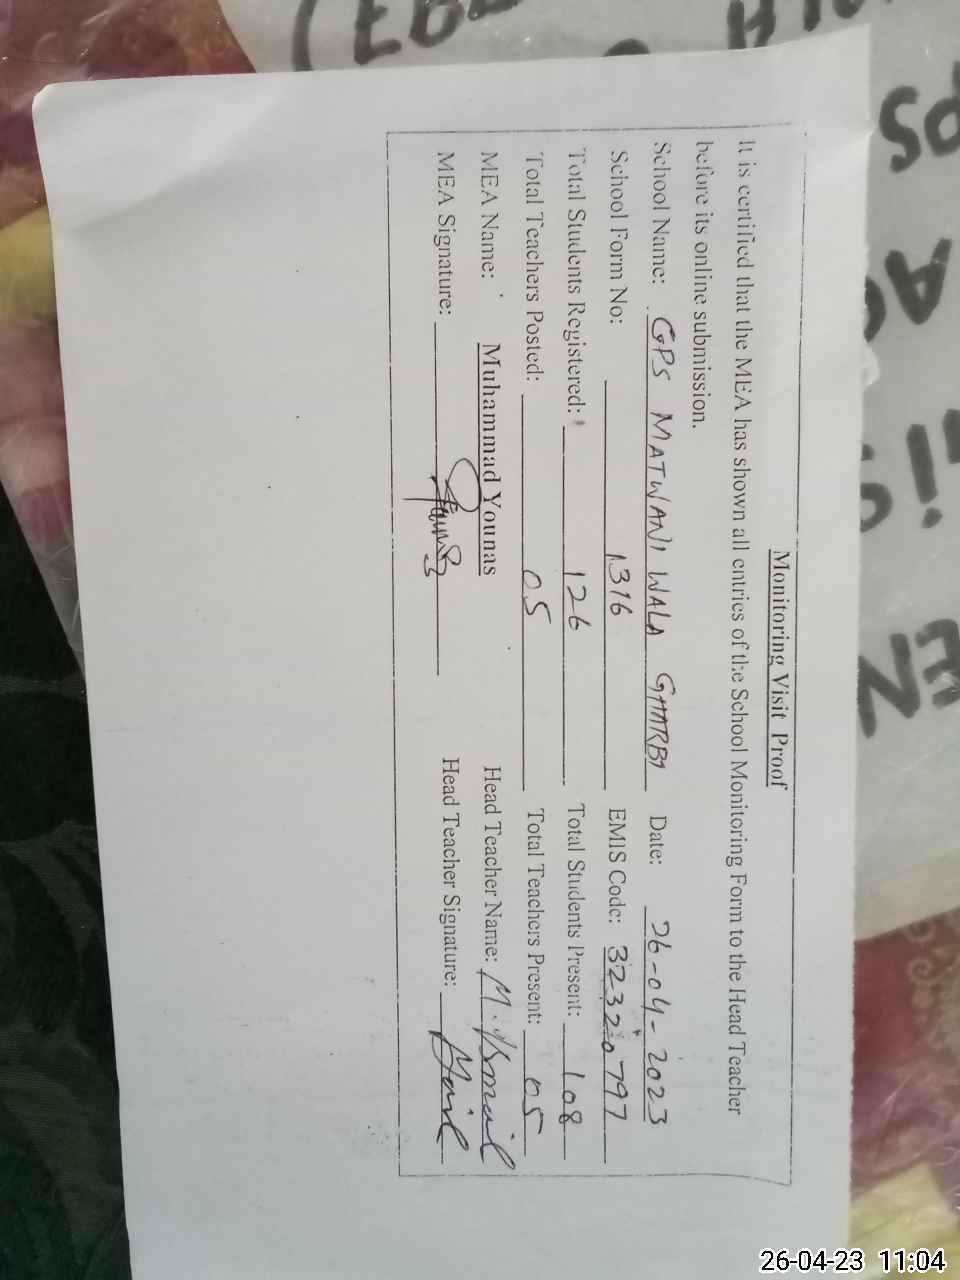 Monitoring Visit Proof
It is certified that the MEA has shown all entries of the School Monitoring Form to the Head Teacher
before its online submission.
School Name: GPS MATWANI WALA GHARBI Date: 26-04-2023
School Form No: 1316 EMIS Code: 32320797
Total Students Registered: 126 Total Students Present: 108
Total Teachers Posted: 05 Total Teachers Present: 05
MEA Name: Muhammad Younas Head Teacher Name: M. Ismail
MEA Signature: Head Teacher Signature:
26-04-23 11:04